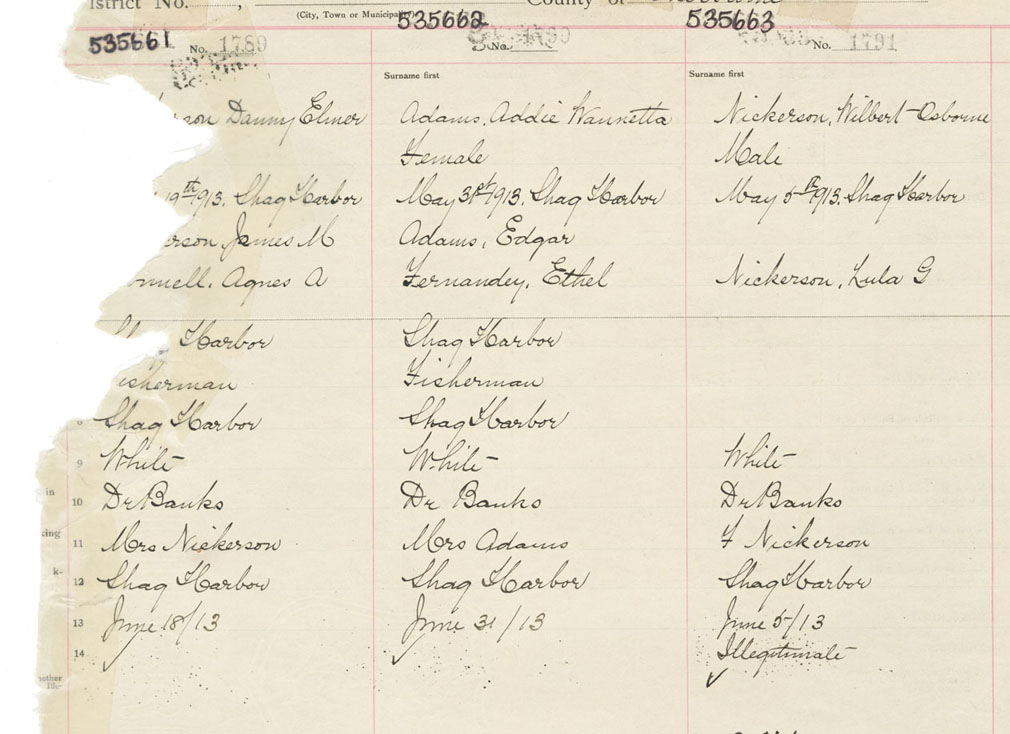 istrict No. , County of
(City, Town or Municipality)
535661 535662 535663
No. 1789 No. No. 1791
Surname first Surname first
Danny Elmer Adams, Addie Wannetta Nickerson, Wilbert Osborne
Female Male
19th/913. Shag Harbor May 31st/913. Shag Harbor May 5th/913. Shag Harbor
erson James M Adams, Edgar
nnell, Agnes A Fernandey, Ethel Nickerson, Lula G
Harbor Shag Harbor
isherman Fisherman
8 Shag Harbor Shag Harbor
9 White White White
in
10 Dr Banks Dr Banks Dr Banks
king
11 Mrs Nickerson Mrs Adams F Nickerson
k-
12 Shag Harbor Shag Harbor Shag Harbor
13 June 18/13 June 31/13 June 5/13
14 Illegitimate